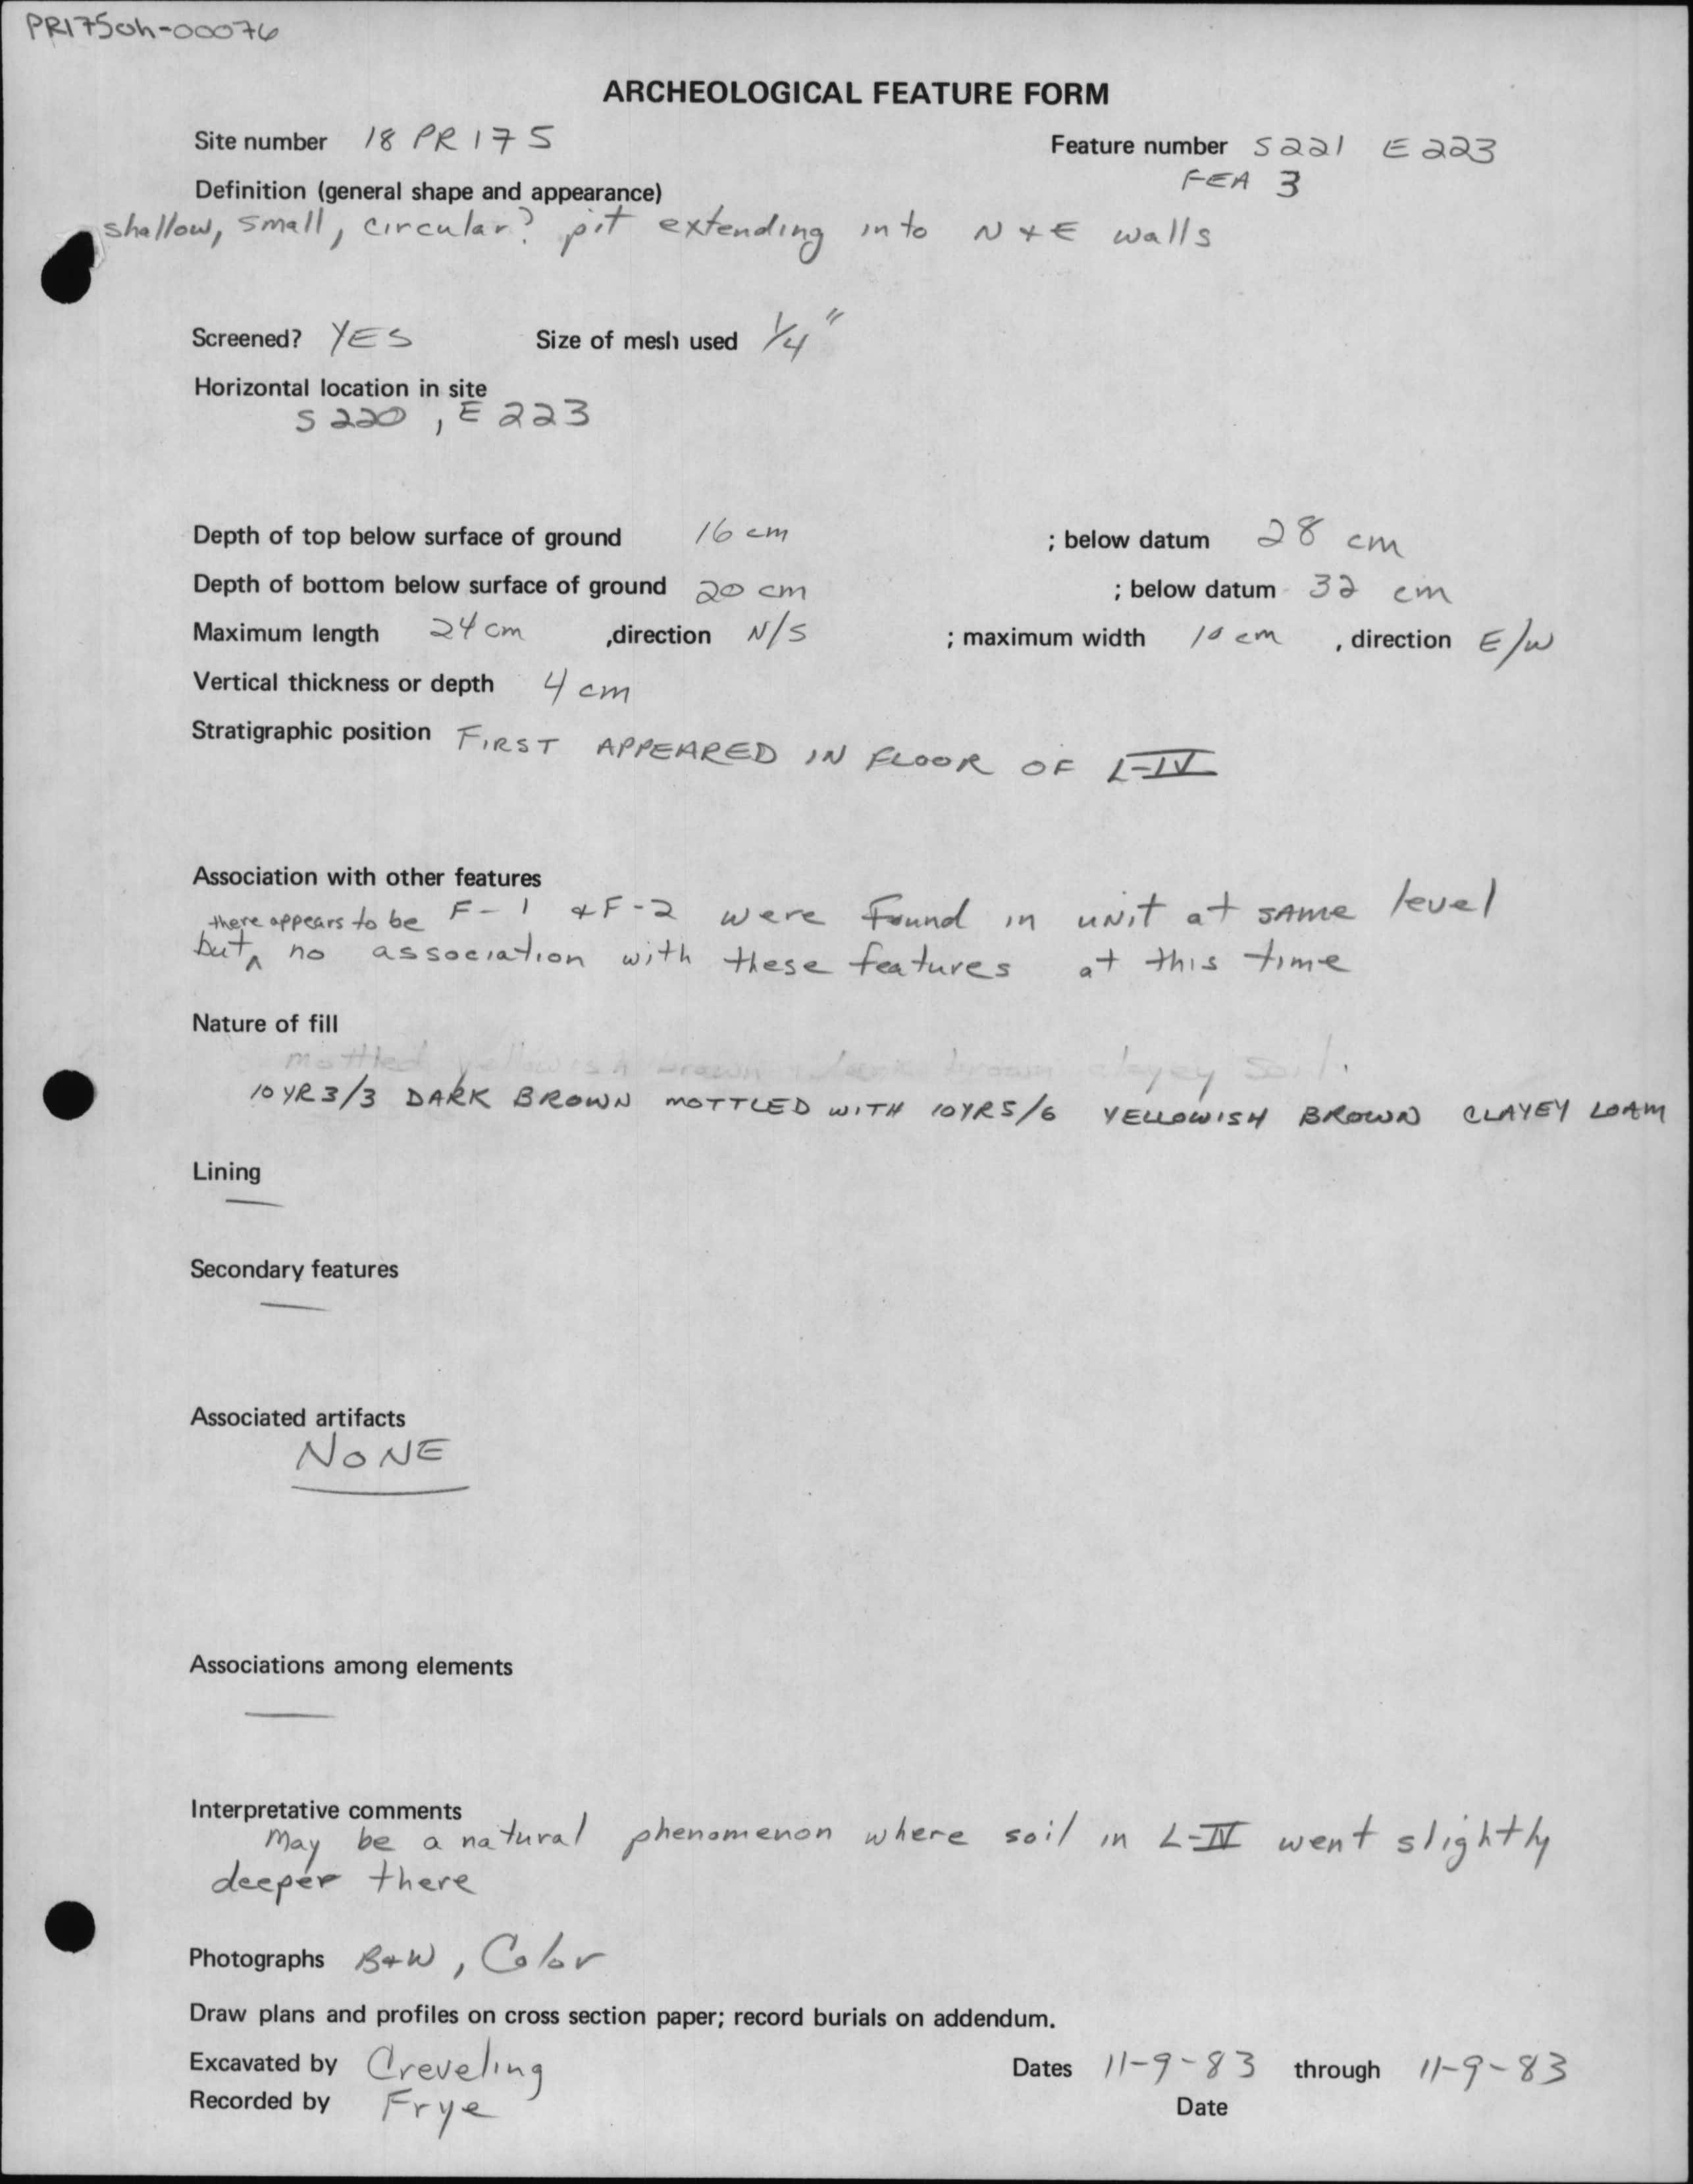 PR175oh-00076
ARCHEOLOGICAL FEATURE FORM
Site number 18 PR 175 Feature number S221 E223
FEA 3
Definition (general shape and appearance)
shallow, small, circular? pit extending into N + E walls
Screened? YES Size of mesh used 1/4"
Horizontal location in site
S 220, E 223
Depth of top below surface of ground 16 cm ; below datum 28 cm
Depth of bottom below surface of ground 20 cm ; below datum 32 cm
Maximum length 24 cm ,direction N/S ; maximum width 10 cm , direction E/W
Vertical thickness or depth 4 cm
Stratigraphic position FIRST APPEARED IN FLOOR OF L-IV
Association with other features
F-1 + F-2 were found in unit at same level
there appears to be
but ^ no association with these features at this time
Nature of fill
mottled yellowish brown dark brown clayey soil.
10YR3/3 DARK BROWN MOTTLED WITH 10YR5/6 YELLOWISH BROWN CLAYEY LOAM
Lining
Secondary features
Associated artifacts
NONE
Associations among elements
Interpretative comments
May be a natural phenomenon where soil in L-IV went slightly
deeper there
Photographs B+W, Color
Draw plans and profiles on cross section paper; record burials on addendum.
Excavated by Creveling Dates 11-9-83 through 11-9-83
Recorded by Frye Date